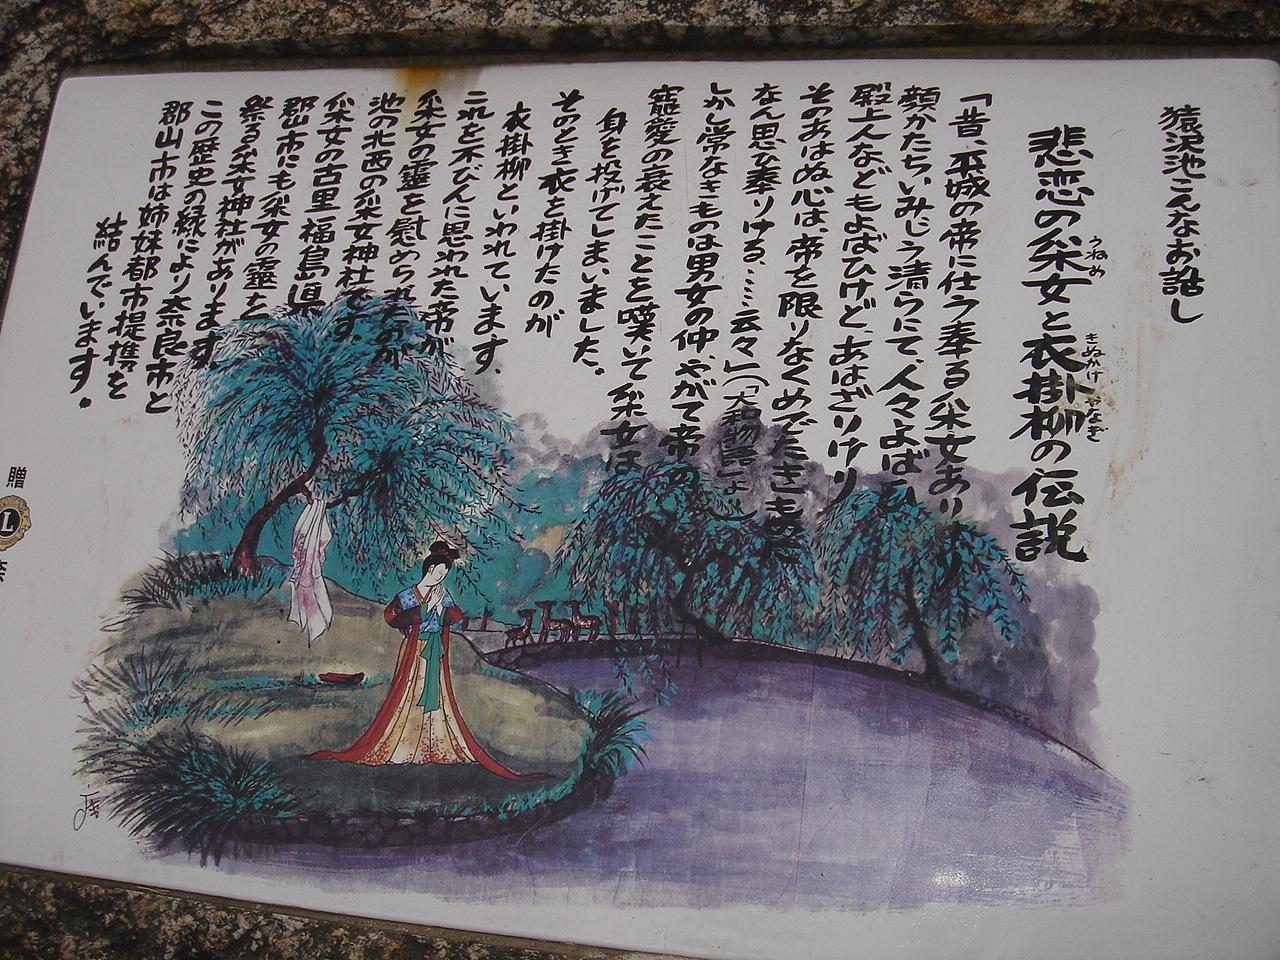 猿沢池こんなお話し
悲恋の采女と衣掛柳の伝説
うねめ
きぬかけ やなぎ
「昔、平城の帝に仕う奉る采女ありけり
顔かたちいみじう清らにて、人々よばひ
殿上人などもよばひけど、あはざりけり
そのあはぬ心は、帝を限りなくめでたきもの
なん思ひ奉りける、……云々」(「大和物語」より)
しかし常なきものは男女の仲、やがて帝の
寵愛の衰えたことを嘆いて采女は
身を投げてしまいました。
そのとき衣を掛けたのが
衣掛柳といわれています。
これを不びんに思われた帝が
采女の霊を慰められたのが
池の北西の采女神社です。
采女の古里福島県
郡山市にも采女の霊を
祭る采女神社があります。
この歴史の縁により奈良市と
郡山市は姉妹都市提携を
結んでいます。
贈
L